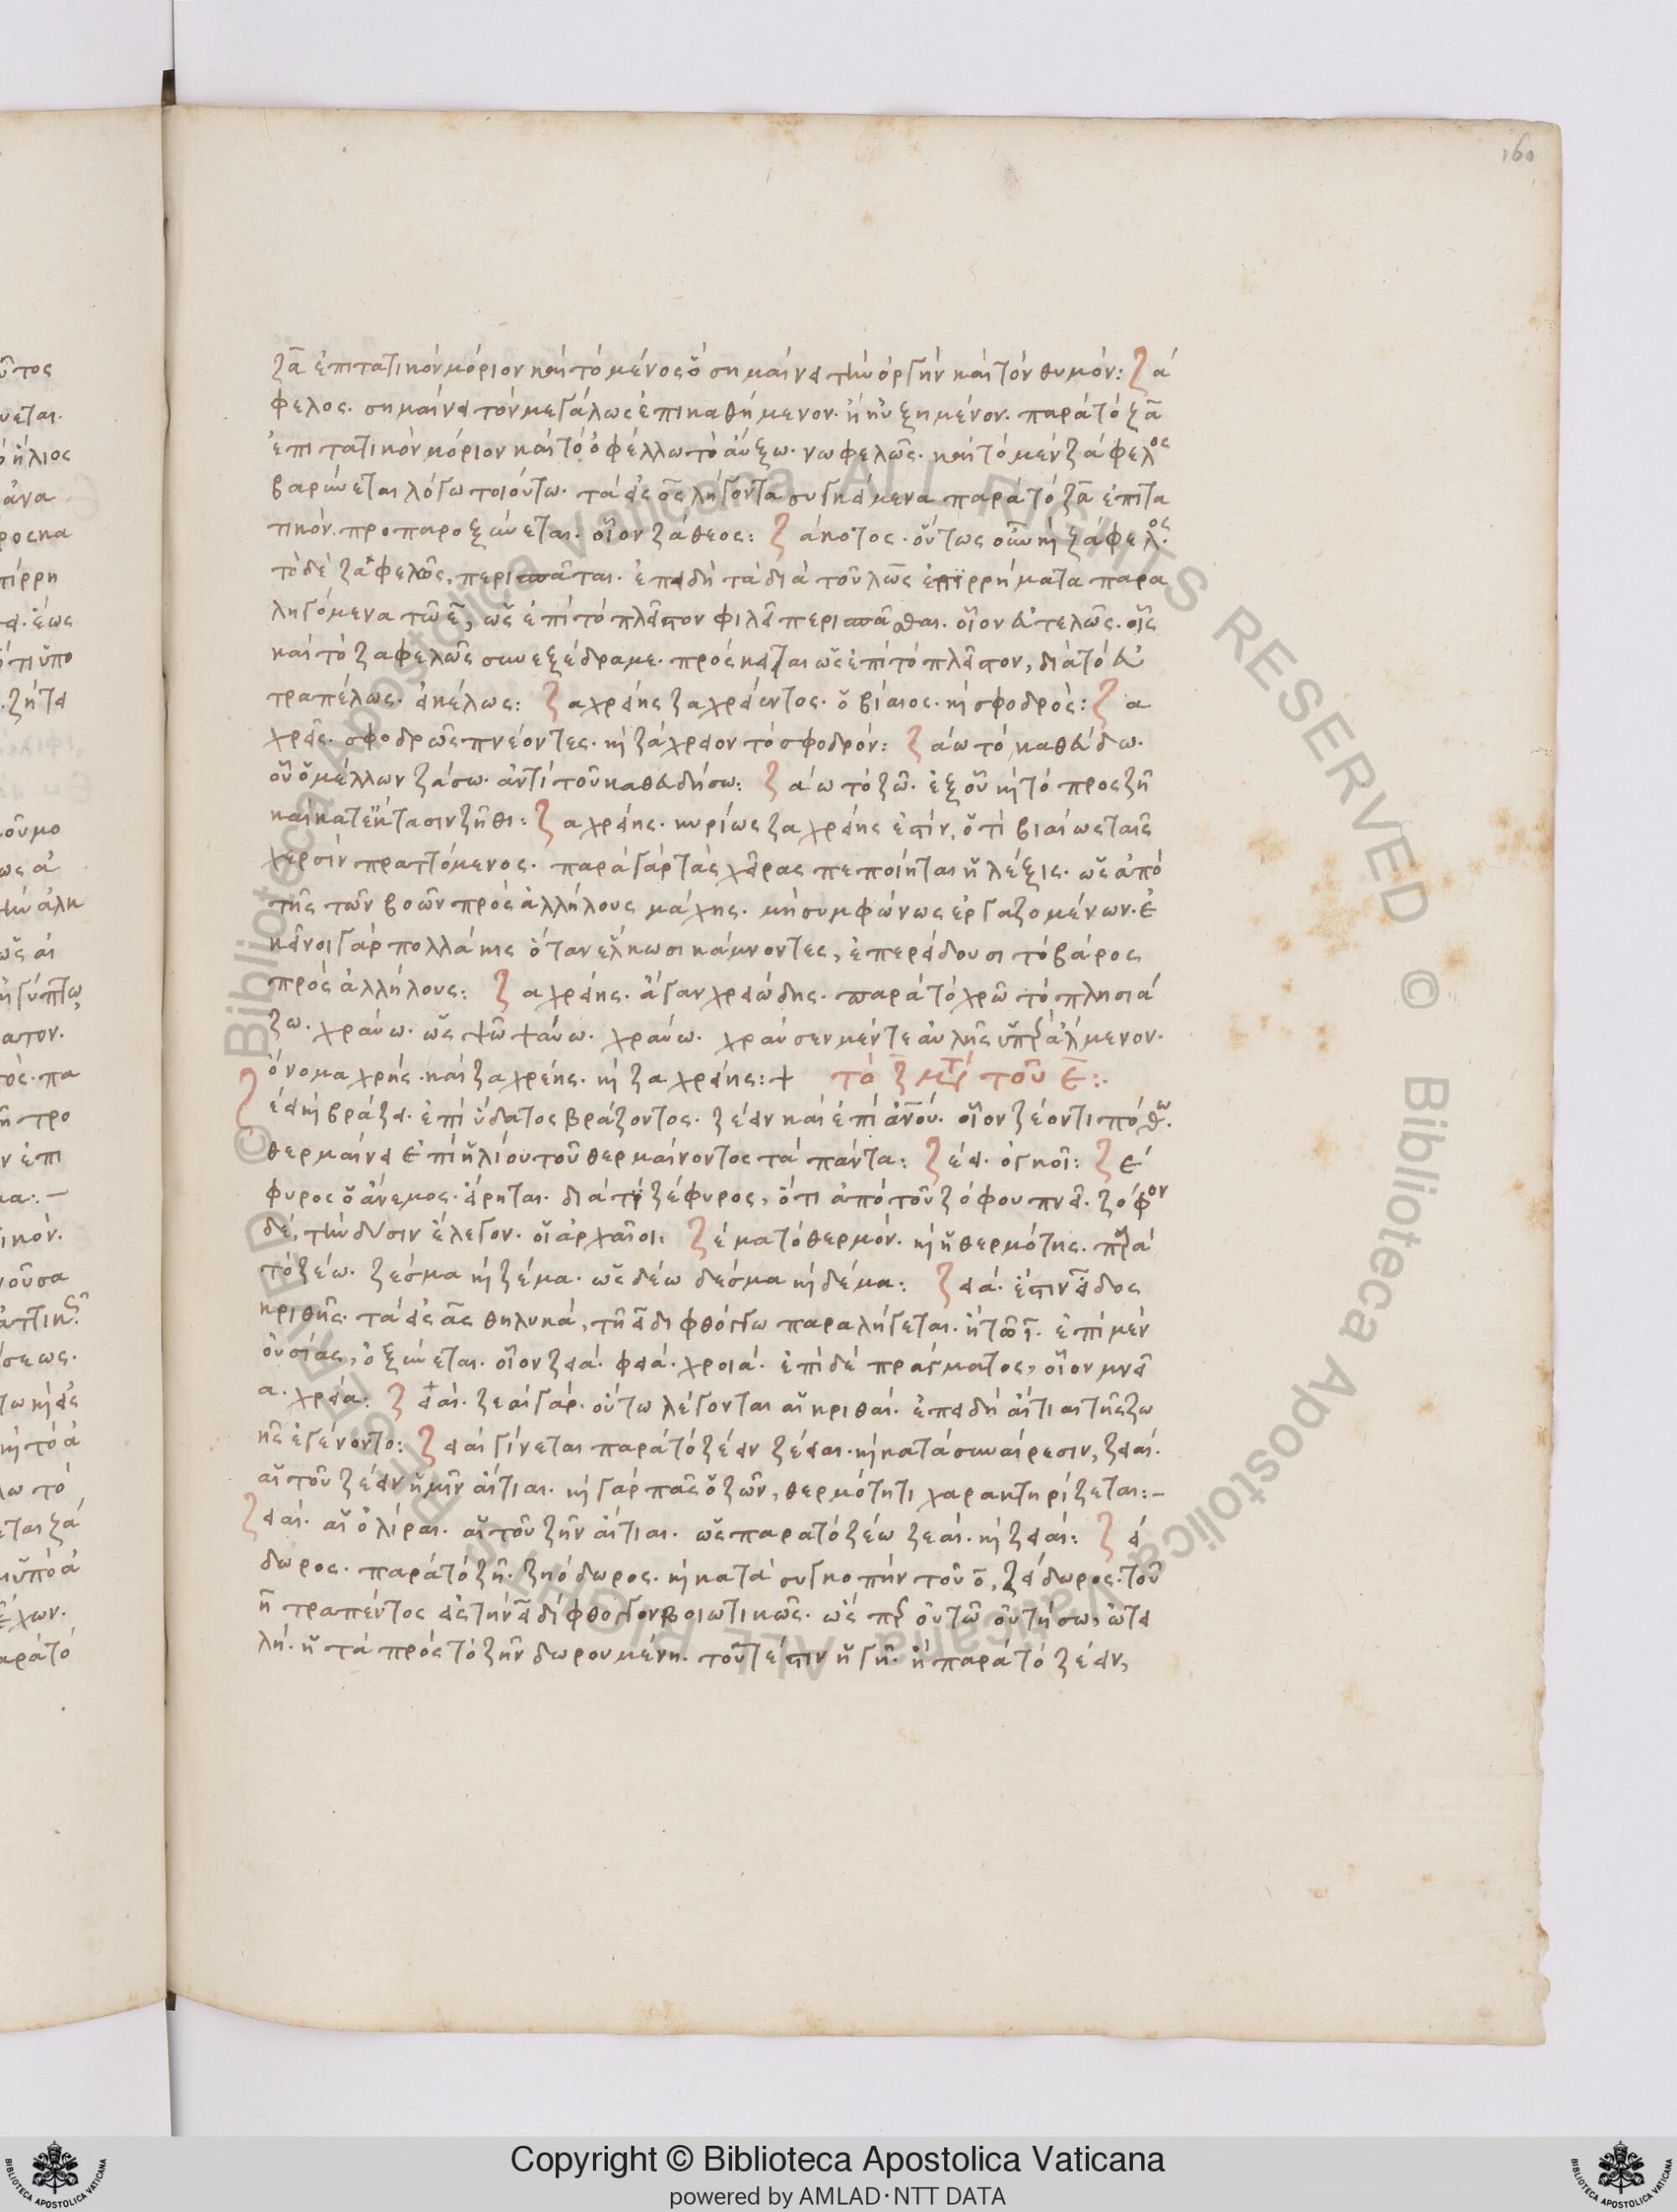 160
ζα ἐπιτατικὸν μόριον καὶ τὸ μένος ὃ σημαίνει τὴν ὀργὴν καὶ τὸν θυμόν: Ζά
φελος· σημαίνει τὸν μεγάλως ἐπικαθήμενον· ἢ ηὐξημένον· παρὰ τὸ ζα
ἐπιτατικὸν μόριον καὶ τὸ ὀφέλλω τὸ αὔξω· νωφελῶς· καὶ τὸ μὲν ζάφελος
βαρύνεται λόγω τοιούτω· τὰ εἰς ος λήγοντα συγκείμενα παρὰ τὸ ζα ἐπιτα
τικὸν προπαροξύνεται· οἷον ζάθεος: Ζάκοτος· οὕτως οὖν καὶ ζάφελος·
τὸ δὲ ζαφελῶς, περισπᾶται· ἐπειδὴ τὰ διὰ τοῦ λως ἐπιρρήματα παρα
ληγόμενα τῶ ε, ὡς ἐπὶ τὸ πλεῖστον φιλεῖ περισπᾶσθαι· οἷον εὐτελῶς· οἷς
καὶ τὸ ζαφελῶς συνεξέδραμε· πρόσκειται ὡς ἐπὶ τὸ πλεῖστον, διὰ τὸ εὐ
τραπέλως· εἰκέλως: Ζαχρειής ζαχρειέντος· ὁ βίαιος· καὶ σφοδρός: Ζα
χρεῖς· σφοδρῶς πνέοντες· καὶ ζάχρειον τὸ σφοδρόν: Ζάω τὸ καθεύδω·
οὗ ὁ μέλλων ζάσω· ἀντὶ τοῦ καθευδήσω: Ζάω τὸ ζῶ· ἐξ οὗ καὶ τὸ προσζῆ
καὶ κατ' ἔκτασιν ζῆθι: Ζαχρειής· κυρίως ζαχρειής ἐστιν, ὅτι βιαίως ταῖς
χερσὶν πραττόμενος· παρὰ γὰρ τὰς χεῖρας πεποίηται ἡ λέξις· ὡς ἀπὸ
τῆς τῶν βοῶν πρὸς ἀλλήλους μάχης· μὴ συμφώνως ἐργαζομένων· ἐ
κεῖνοι γὰρ πολλάκις ὅταν ἕλκωσι κάμνοντες, ἐπερείδουσι τὸ βάρος
πρὸς ἀλλήλους: Ζαχρειής· ἄγαν χρειώδης· παρὰ τὸ χρῶ τὸ πλησιά
ζω· χραύω· ὡς ψῶ ψαύω· χραύω· χραύσει μέν τε αὐλῆς ὑπεράλμενον·
ὄνομα χρής· καὶ ζαχρέης· καὶ ζαχρειής:+ τὸ ζ μετὰ τοῦ ε:·
Ζέει καὶ βράζει· ἐπὶ ὕδατος βράζοντος· ζέειν καὶ ἐπὶ ἀνου· οἷον ζέοντι πόθω·
θερμαίνει ἐπὶ ἡλίου τοῦ θερμαίνοντος τὰ πάντα: Ζέει· ὀγκοῖ: Ζέ
φυρος ὁ ἄνεμος· εἴρηται· διατί ζέφυρος, ὅτι ἀπὸ τοῦ ζόφου πνεῖ· ζόφον
δὲ, τὴν δύσιν ἔλεγον· οἱ ἀρχαῖοι: Ζέμα τὸ θερμόν· καὶ ἡ θερμότης· παρὰ
τὸ ζέω· ζέσμα καὶ ζέμα· ὡς δέω δέσμα καὶ δέμα: Ζειά· ἐστιν εἶδος
κριθῆς· τὰ εἰς ας θηλυκά, τῆ ει διφθόγγω παραλήγεται· ἢ τῶ ι· ἐπὶ μὲν
οὐσίας, ὀξύνεται· οἷον ζειά· φειά· χροιά· ἐπὶ δὲ πράγματος, οἷον μνεῖ
α· χρεία: Ζειαί· ζεαὶ γάρ· οὕτω λέγονται αἱ κριθαί· ἐπειδὴ αἴτιαι τῆς ζω
ῆς ἐγένοντο: Ζειαί γίνεται παρὰ τὸ ζέειν ζέειαι· καὶ κατὰ συναίρεσιν, ζειαί·
αἱ τοῦ ζέειν ἡμῖν αἴτιαι· καὶ γὰρ πᾶς ὁ ζῶν, θερμότητι χαρακτηρίζεται:-
Ζειαί· αἱ ὀλίραι· αἱ τοῦ ζῆν αἴτιαι· ὡς παρὰ τὸ ζέω ζεαί· καὶ ζειαί: Ζεί
δωρος· παρὰ τὸ ζῆ· ζηόδωρος· καὶ κατὰ συγκοπὴν τοῦ ο, ζείδωρος· τοῦ
η τραπέντος εἰς τὴν ει δίφθογγον βοιωτικῶς· ὡς παρ οὐτῶ οὐτήσω, ὠτει
λή· ἡ τὰ πρὸς τὸ ζῆν δωρουμένη· τοῦτέστιν ἡ γῆ· ἢ παρὰ τὸ ζέειν,
Copyright © Biblioteca Apostolica Vaticana
powered by AMLAD·NTT DATA